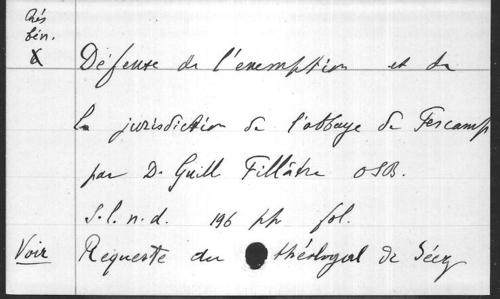 Rés
bén.
Défense de l'exemption et de
la jurisdiction de l'abbaye de Fescamp
par D. Guill Fillâtre OSB.
S.l.n.d. 196 pp fol.
Voir Requeste du théologal de Séez